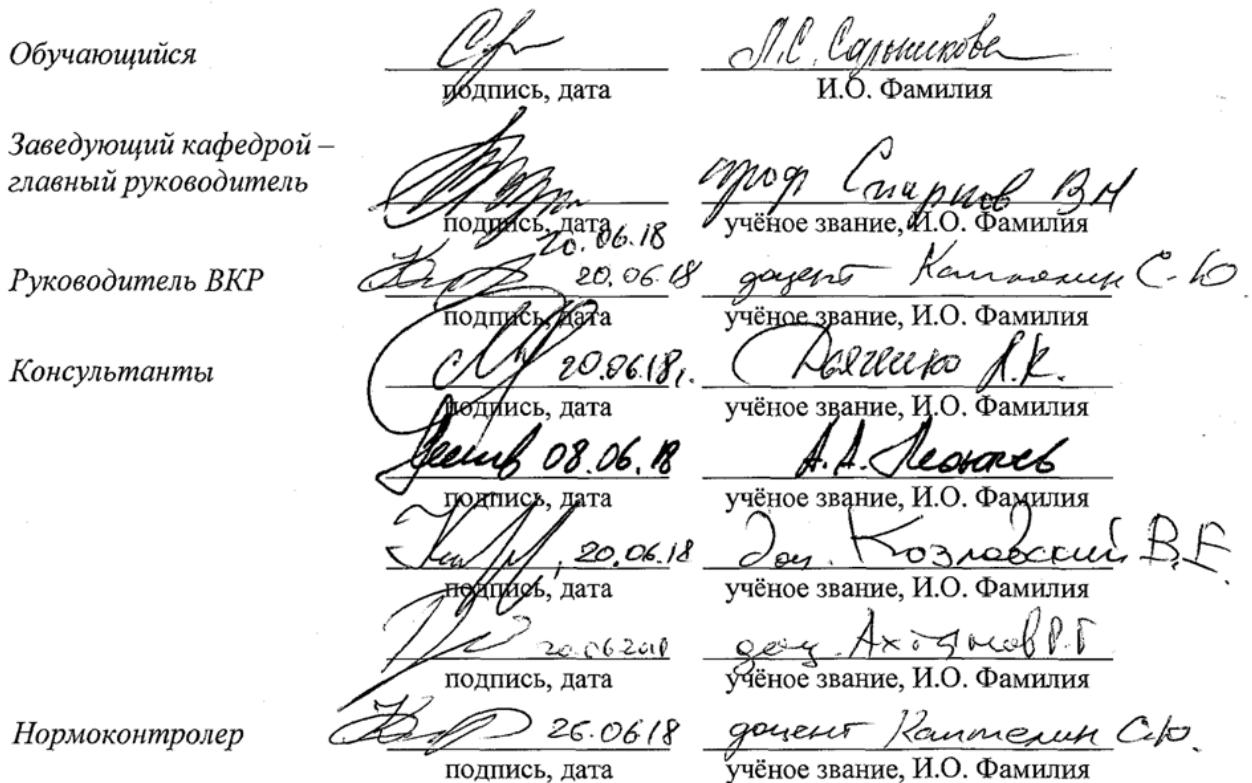 Обучающийся П.С. Сальникова
подпись, дата И.О. Фамилия
Заведующий кафедрой –
главный руководитель проф Смирнов В Н
подпись, дата учёное звание, И.О. Фамилия
20.06.18
Руководитель ВКР 20.06.18 доцент Каптелин С.Ю.
подпись, дата учёное звание, И.О. Фамилия
Консультанты 20.06.18г. Дьяченко Л.К.
подпись, дата учёное звание, И.О. Фамилия
08.06.18 А.А.
подпись, дата учёное звание, И.О. Фамилия
20.06.18 доц. Козловский В.Е.
подпись, дата учёное звание, И.О. Фамилия
20.06.2018 доц. Ахтямов Р.Г
подпись, дата учёное звание, И.О. Фамилия
Нормоконтролер 26.06.18 доцент Каптелин С.Ю.
подпись, дата учёное звание, И.О. Фамилия